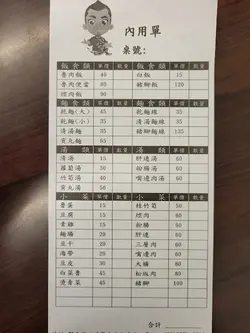 內用單
桌號:
飯食類 單價 數量 飯食類 單價 數量
魯肉飯 40 白飯 15
魯肉便當 80 豬腳飯 120
焢肉飯 90
麵食類 單價 數量 麵食類 單價 數量
乾麵(大) 45 乾麵線 35
乾麵(小) 35 清湯麵線 35
清湯麵 35 豬腳麵線 135
貢丸麵 50
湯類 單價 數量 湯類 單價 數量
清湯 15 肝連湯 60
蘿蔔湯 50 粉腸湯 60
竹筍湯 40 嘴邊肉湯 60
貢丸湯 50
小菜 單價 數量 小菜 單價 數量
魯蛋 15 桂竹筍 50
豆腐 15 焢肉 60
素雞 15 粉腸 60
麵腸 20 肝連 60
豆干 20 三層肉 60
海帶 20 嘴邊肉 60
豆皮 30 大腸 60
白菜魯 45 松坂肉 80
燙青菜 45 豬腳 100
合計